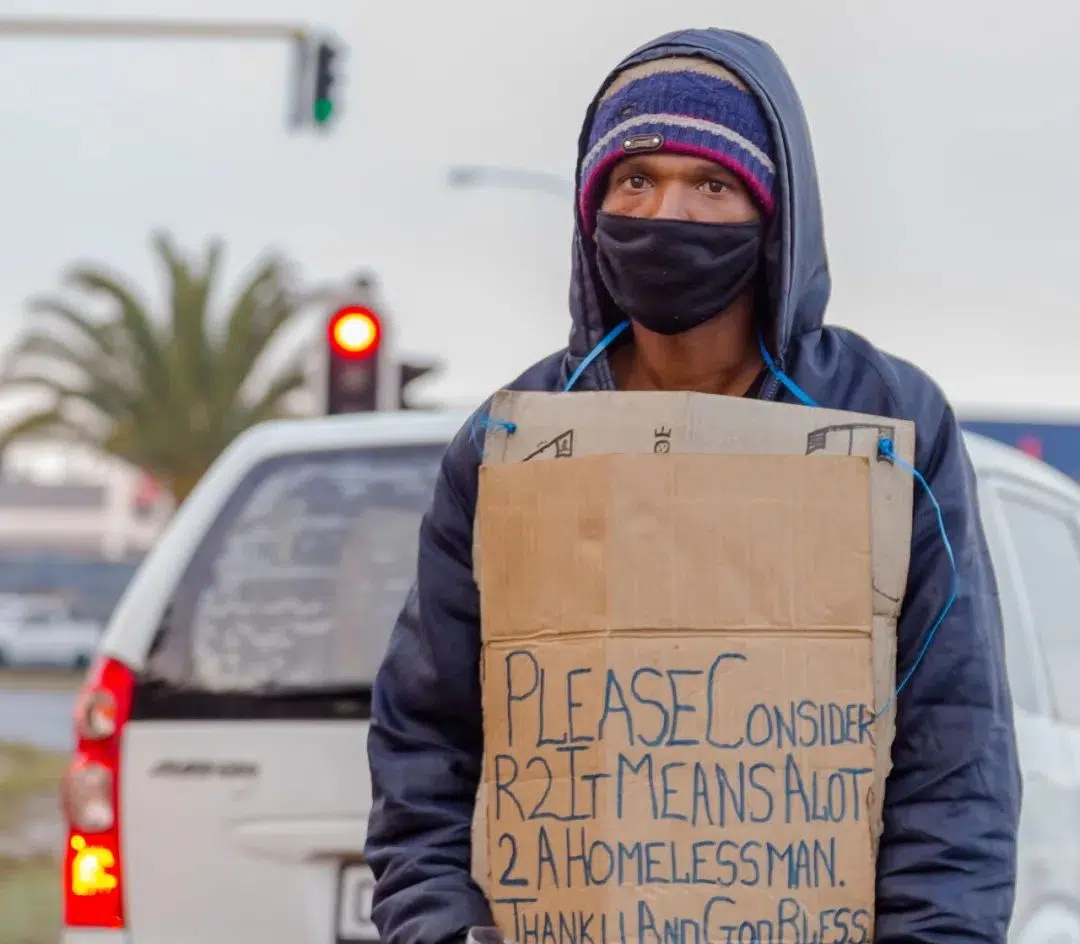 PLEASE CONSIDER
R2 IT MEANS A LOT
2 A HOMELESS MAN.
THANK U AND GOD BLESS